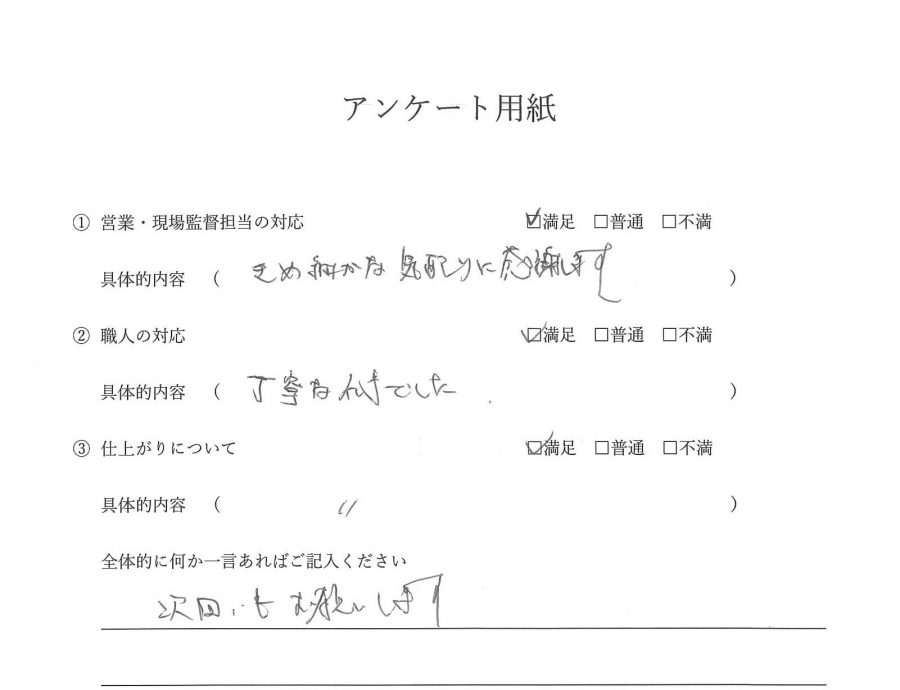 アンケート用紙
① 営業・現場監督担当の対応 ☑満足 □普通 □不満
具体的内容 （ きめ細かな気配りに感謝します ）
② 職人の対応 ☑満足 □普通 □不満
具体的内容 （ 丁寧な でした ）
③ 仕上がりについて ☑満足 □普通 □不満
具体的内容 （ 〃 ）
全体的に何か一言あればご記入ください
次回もお願いします